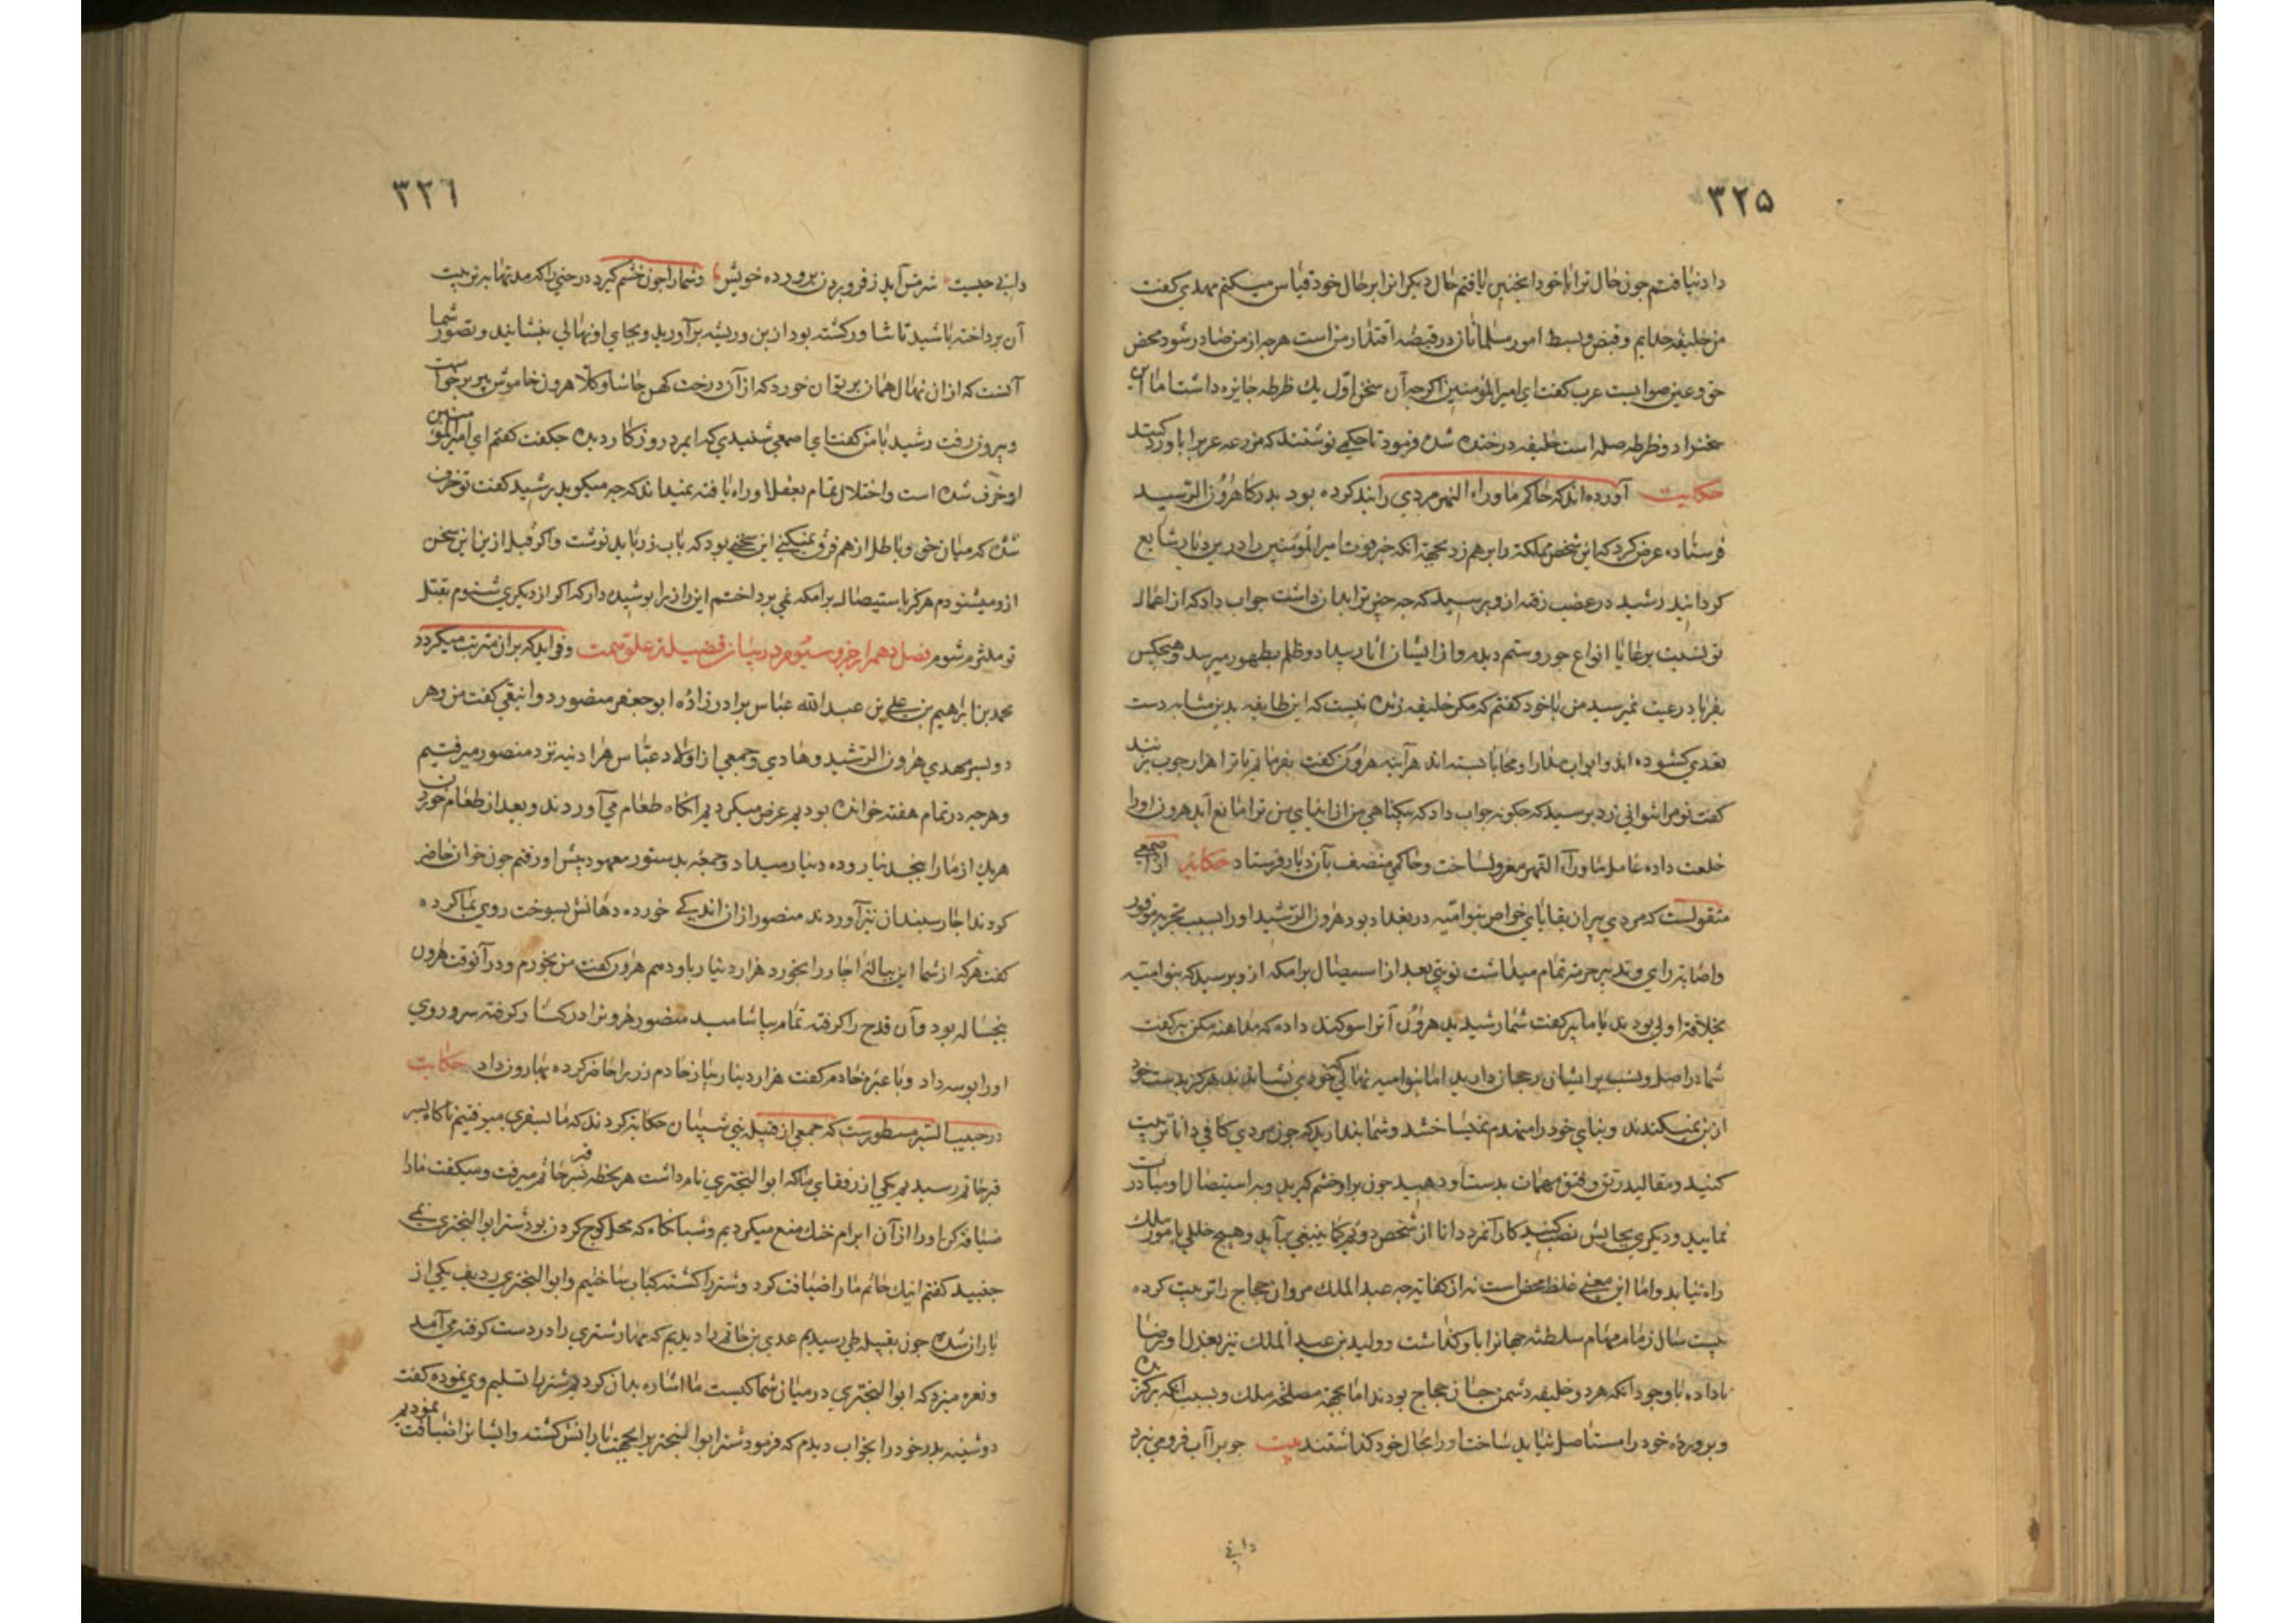 ۳۲۵
داد نیافتم چون حال ترا با خود اینچنین یافتم حال دیگرانرا بر حال خود قیاس میکنم مهدی گفت
من خلیفه خدایم و قبض و بسط امور مسلمانان در قبضه اقتدار من است هرچه از من صادر شود محض
حق و عین صوابست عرب گفت ای امیر المؤمنین اگرچه آن سخن اول یك ظرطه جایزه داشت اما این
سخنرا دو ظرطه صله است خلیفه در خنده شده فرمود تا حکمی نوشتند که مزرعه عربرا باو رد کنند
حکایت آورده اند که حاکم ماوراء النهر مردی را بند کرده بود بدرگاه هرون الرشید
فرستاده عرض کرد که این شخص مملکة را برهم زد بجهة آنکه خبر فوت امیر المؤمنین را درین دیار شایع
گردانید رشید در غضب رفته ازو پرسید که چه چیز ترا بدان داشت جواب داد که از اعمال
تو نسبت برعایا انواع جور و ستم دیدم و از ایشان آثار بیداد و ظلم بظهور میرسد و هیچکس
بفریاد رعیت نمیرسد من با خود گفتم که مگر خلیفه زنده نیست که این طایفه بدین مثابه دست
تعدی گشوده اند و ابواب مدارا و محابا بسته اند هرآینه هرون گفت بفرمایم تا ترا هزار چوب بزنند
گفت تو مرا نتوانی زد پرسید که چگونه جواب داد که بیگناهی من از ایذای من ترا مانع آید هرون اورا
خلعت داده عامل ماوراء النهر معزول ساخت و حاکمی منصف بآن دیار فرستاد حکایت از اصمعی
منقولست که مردی پیر از بقایای خواص بنوامیه در بغداد بود هرون الرشید اورا بسبب تجربه موفور
و اصابة رای و تدبیر حرمة تمام میداشت نوبتی بعد از استیصال برامکه ازو پرسید که بنوامیه
بخلافة اولی بودند یا ما پیر گفت شما رشید بد هرون آنرا سوگند داده که مداهنه مکن پیر گفت
شما در اصل و نسب بر ایشان رجحان دارید اما بنوامیه نهالی که خود می نشاندند هرگز بدست خود
از بن نمیکندند و بنای خود را منهدم نمیساختند و شما بنیاد آنکه چون مردی کافی دانا تربیت
کنید و مقالید رتق و فتق مهمات بدست او دهید چون براو خشم گیرید و براستیصال او مبادرت
نمایید و دیگری بجایش نصب کنید کار آنمرد دانا از شخص دویم کما ینبغی برآید و هیچ خللی بامور ملك
راه نیابد و اما این معنی غلط محض است نه از کفایة چه عبدالملك مروان حجاج را تربیت کرده
بیست سال زمام مهام سلطنة جهانرا باو گذاشت و ولید بن عبدالملك نیز بعزل او رضا
نداده با وجود آنکه هر دو خلیفه دشمن جان حجاج بودند اما بجهة مصلحة ملك و بسبب آنکه برکنده
و پرورده خود را مستاصل نباید ساخت اورا بحال خود گذاشتند بیت چوبرا آب فرو می نبرد
دانی
۳۲٦
دانی چیست شرمش آید ز فرو بردن پرورده خویش و شما را چون خشم گیرد درختی را که مدتها بتربیت
آن پرداخته باشید تا شاور گشته بود از بن و ریشه برآورید و بجای او نهالی بنشانید و تصور شما
آنست که از ان نهال همان بر توان خورد که از آن درخت کهن حاشا و کلا هرون خاموش پیر برخواست
و بیرون رفت رشید با من گفت ای اصمعی شنیدی که این مرد روزگار دیده چگفت گفتم ای امیر المؤمنین
او خرف شده است و اختلال تمام بعقل او راه یافته نمیداند که چه میگوید رشید گفت تو خرف
شده که میان حق و باطل از هم فرق نمیکنی این سخنی بود که بآب زر باید نوشت و اگر قبل ازین این سخن
ازو میشنودم هرگز باستیصال برامکه نمی پرداختم این راز را پوشیده دار که اگر از دیگری شنوم بقتل
تو ملتزم شوم فصل دهم از جزو سیوم در بیان فضیلة علو همت و فوایدکه بران مترتب میگردد
محمد بن ابراهیم بن علی بن عبدالله عباس برادرزاده ابوجعفر منصور دوانیقی گفت من و هر
دو پسر مهدی هرون الرشید و هادی و جمعی از اولاد عباس هر آدینه نزد منصور میرفتیم
و هرچه در تمام هفته خوانده بودیم عرض میکردیم آنگاه طعام می آوردند و بعد از طعام خوردن
هریك از ما را پنجدینار و ده دینار میداد و جمعه بدستور معهود پیش او رفتم چون خوان حاضر
کردند اچار سپندان نیز آوردند منصور از ان اندکی خورده دهانش بسوخت روی بما کرده
گفت هرکه از شما این پیاله اچار را بخورد هزار دینار باو دهم هرون گفت من بخورم و درآنوقت هرون
پنجساله بود و آن قدح را گرفته تمام بیاشامید منصور هرونرا در کنار گرفته سر و روی
اورا بوسه داد و با عنبر خادم گفت هزار دینار بیار خادم زر را حاضر کرده بهارون داد حکایت
در حبیب السیر مسطورست که جمعی از قبیله بنی شیبان حکایة کردند که ما بسفری میرفتیم ناگاه بسر
قبر حاتم رسیدیم یکی از رفقای ما که ابوالبختری نام داشت هر لحظه بسر قبر حاتم میرفت و میگفت ما را
ضیافة کن اورا از آن ابرام خنك منع میکردیم و شبانگاه که محل کوچ کردن بود شتر ابوالبختری نمی
جنبید گفتم اینك حاتم ما را ضیافت کرد و شتر را کشته کباب ساختیم و ابوالبختری ردیف یکی از
یاران شده چون بقبیله طی رسیدیم عدی بن حاتم را دیدیم که مهار شتری را در دست گرفته می آمد
و نعره میزد که ابوالبختری در میان شما کیست ما اشاره بدان کردیم شتر را تسلیم وی نموده گفت
دوشینه پدر خود را بخواب دیدم که فرمود شتر ابوالبختریرا بجهت یارانش کشته و ایشانرا ضیافت نمودیم